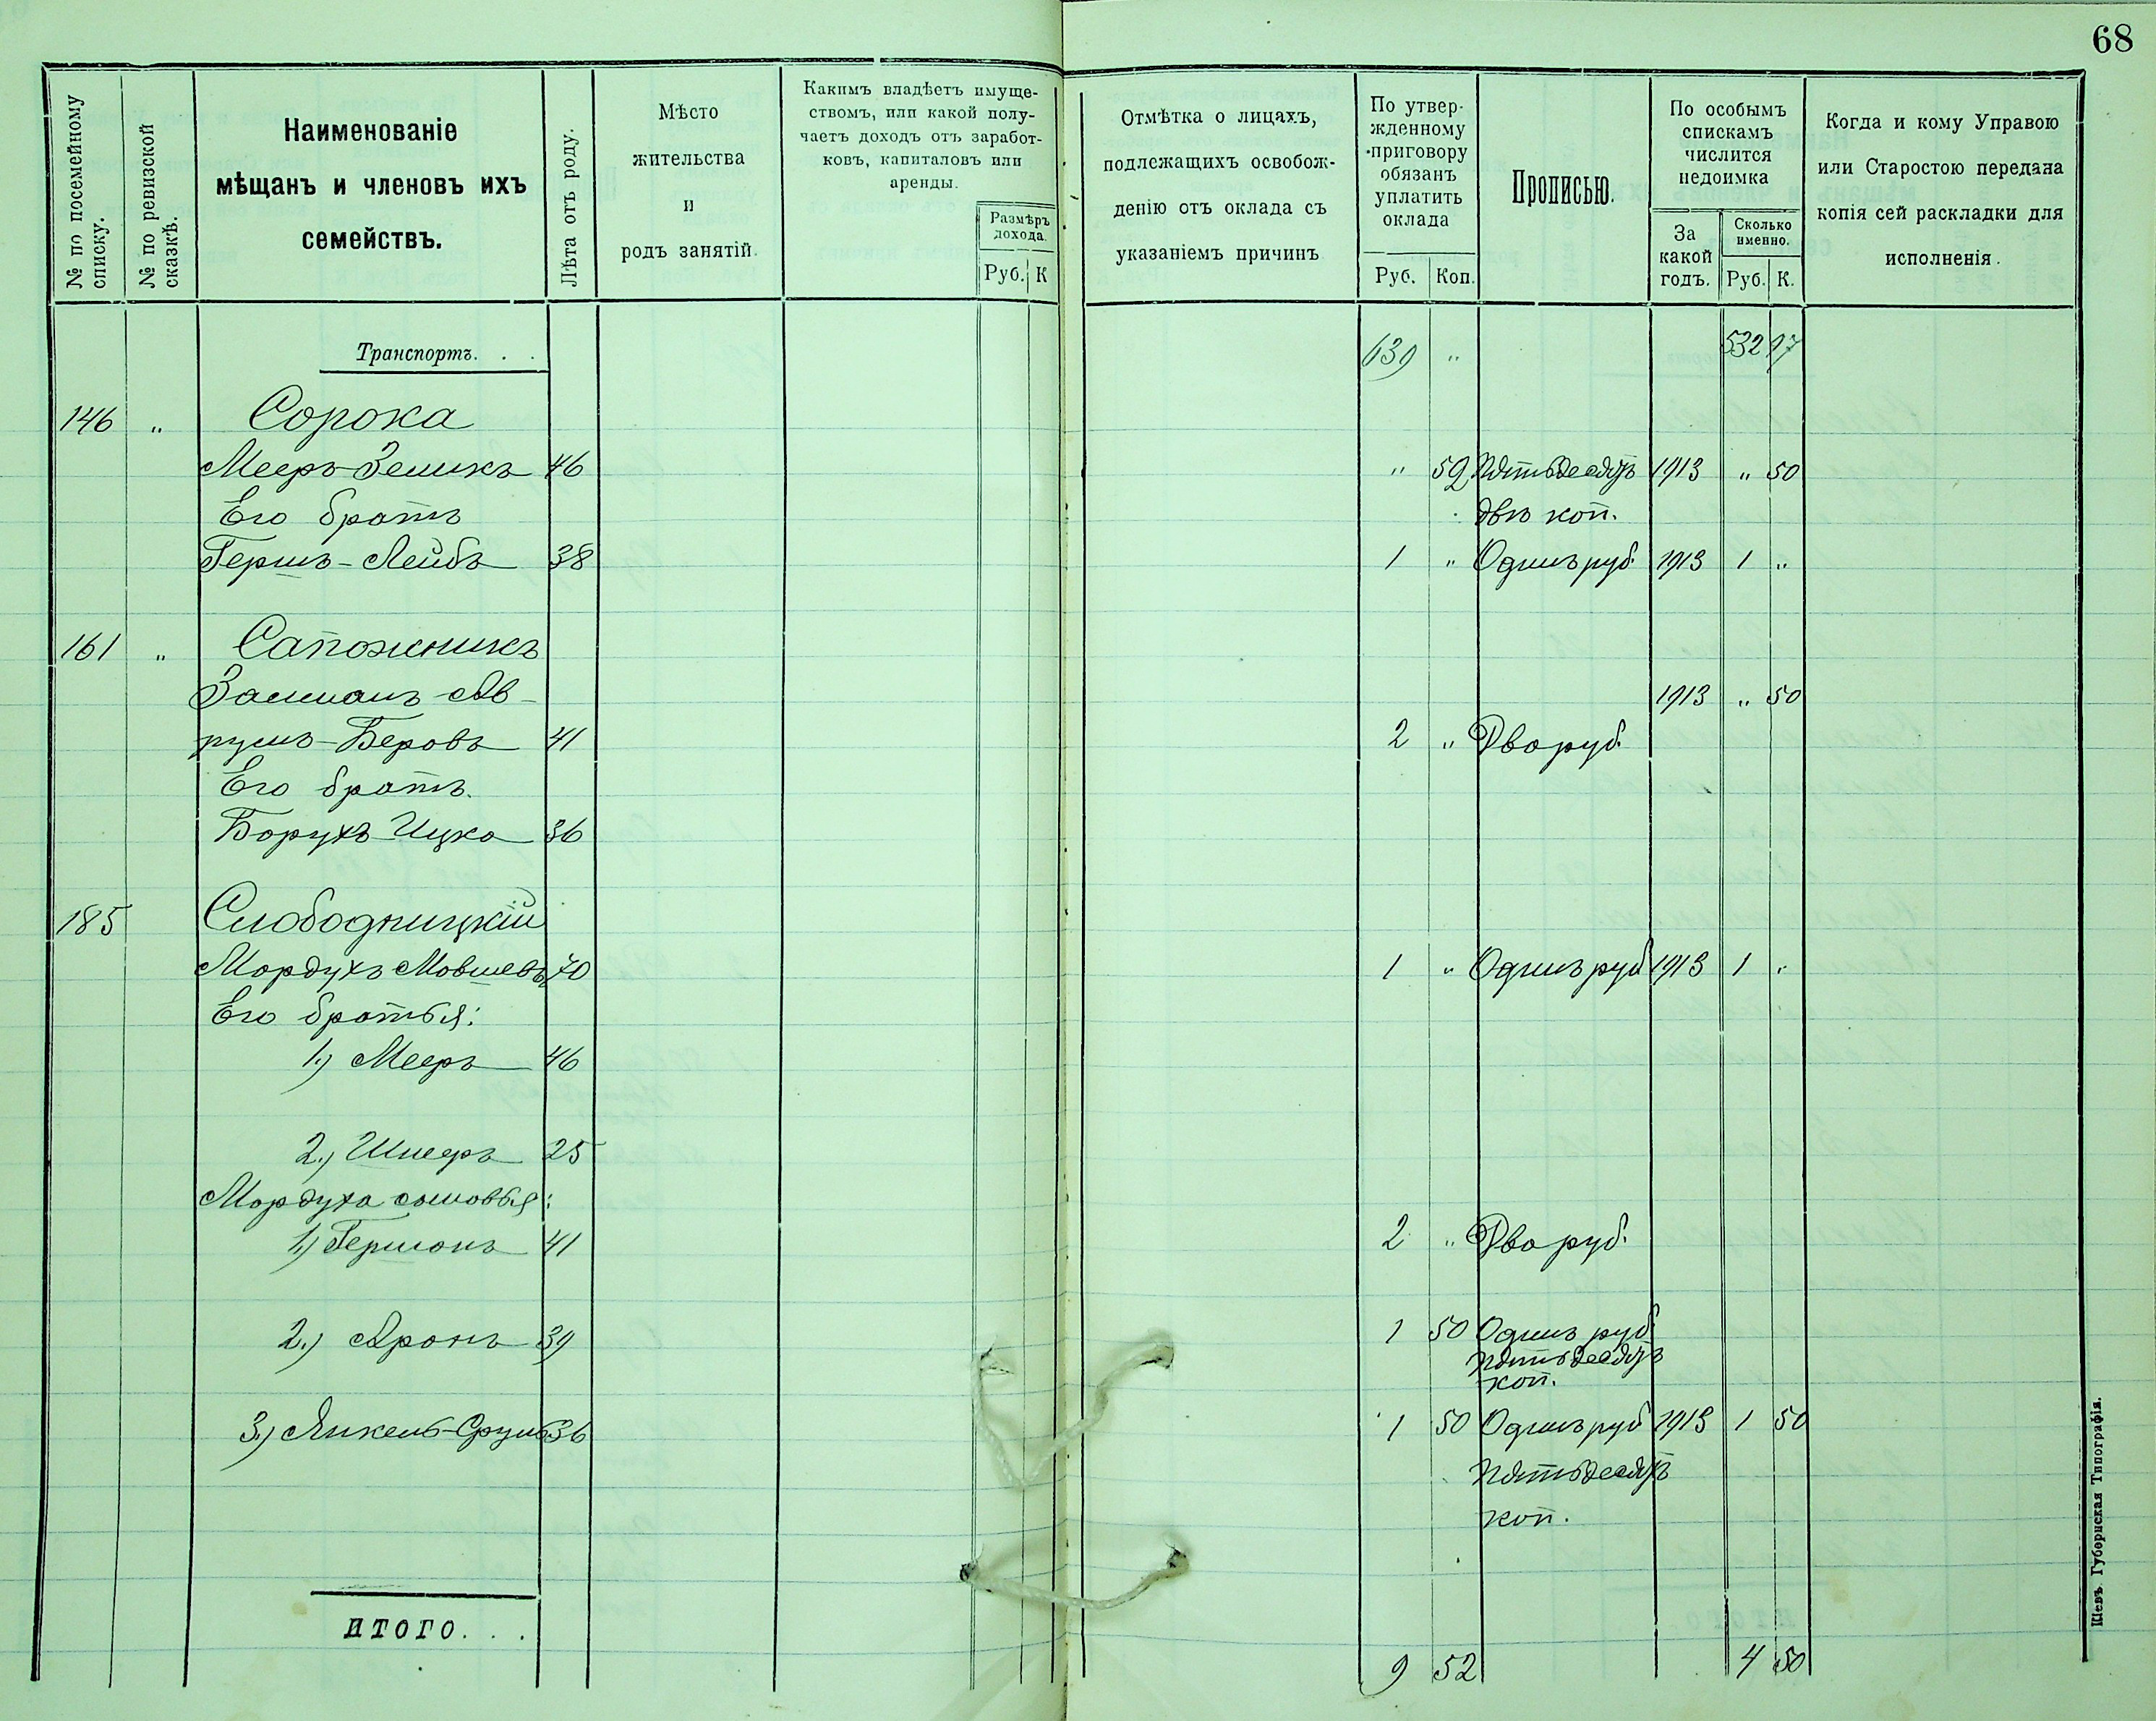 68
№ по посемейному списку.
№ по ревизской сказкѣ.
Наименованіе
мѣщанъ и членовъ ихъ
семействъ.
Лѣта отъ роду.
Мѣсто
жительства
и
родъ занятій.
Какимъ владѣетъ имуще-
ствомъ, или какой полу-
чаетъ доходъ отъ заработ-
ковъ, капиталовъ или
аренды.
Размѣръ
дохода.
Руб. К
Отмѣтка о лицахъ,
подлежащихъ освобож-
денію отъ оклада съ
указаніемъ причинъ
По утвер-
жденному
приговору
обязанъ
уплатить
оклада
Руб. Коп.
Прописью.
По особымъ
спискамъ
числится
недоимка
За
какой
годъ.
Сколько
именно.
Руб. К.
Когда и кому Управою
или Старостою передана
копія сей раскладки для
исполненія.
Транспортъ. . . 639 " 532 97
146 " Сорока
Мееръ-Зеликъ 46 " 52 Пятьдесятъ 1913 " 50
Его братъ двѣ коп.
Гершъ-Лейбъ 38 1 " Одинъ руб. 1913 1 "
161 " Сапожникъ
Залманъ Ав- 1913 " 50
румъ-Беровъ 41 2 " Два руб.
Его братъ.
Борухъ Ицко 36
185 Слободницкій
Мордухъ Мовшевъ 70 1 " Одинъ руб 1913 1 "
Его братья:
1.) Мееръ 46
2.) Шмеръ 25
Мордуха сыновья:
1.) Гершонъ 41 2 " Два руб.
2.) Аронъ 39 1 50 Одинъ руб.
пятьдесятъ
коп.
3.) Янкель-Сруль 36 1 50 Одинъ руб 1913 1 50
пятьдесятъ
коп.
ИТОГО. . .
9 52 4 50
Кіевъ. Губернская Типографія.